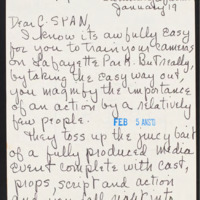 January 19
Dear C-SPAN,
I know its awfully easy
for you to train your cameras
on Lafayette Park. But really,
by taking the easy way out,
you magnify the importance
of an action by a relatively
few people.
FEB 5
They toss up the juicy bait
of a fully produced media
event complete with cast,
props, script and action
and you fall right into